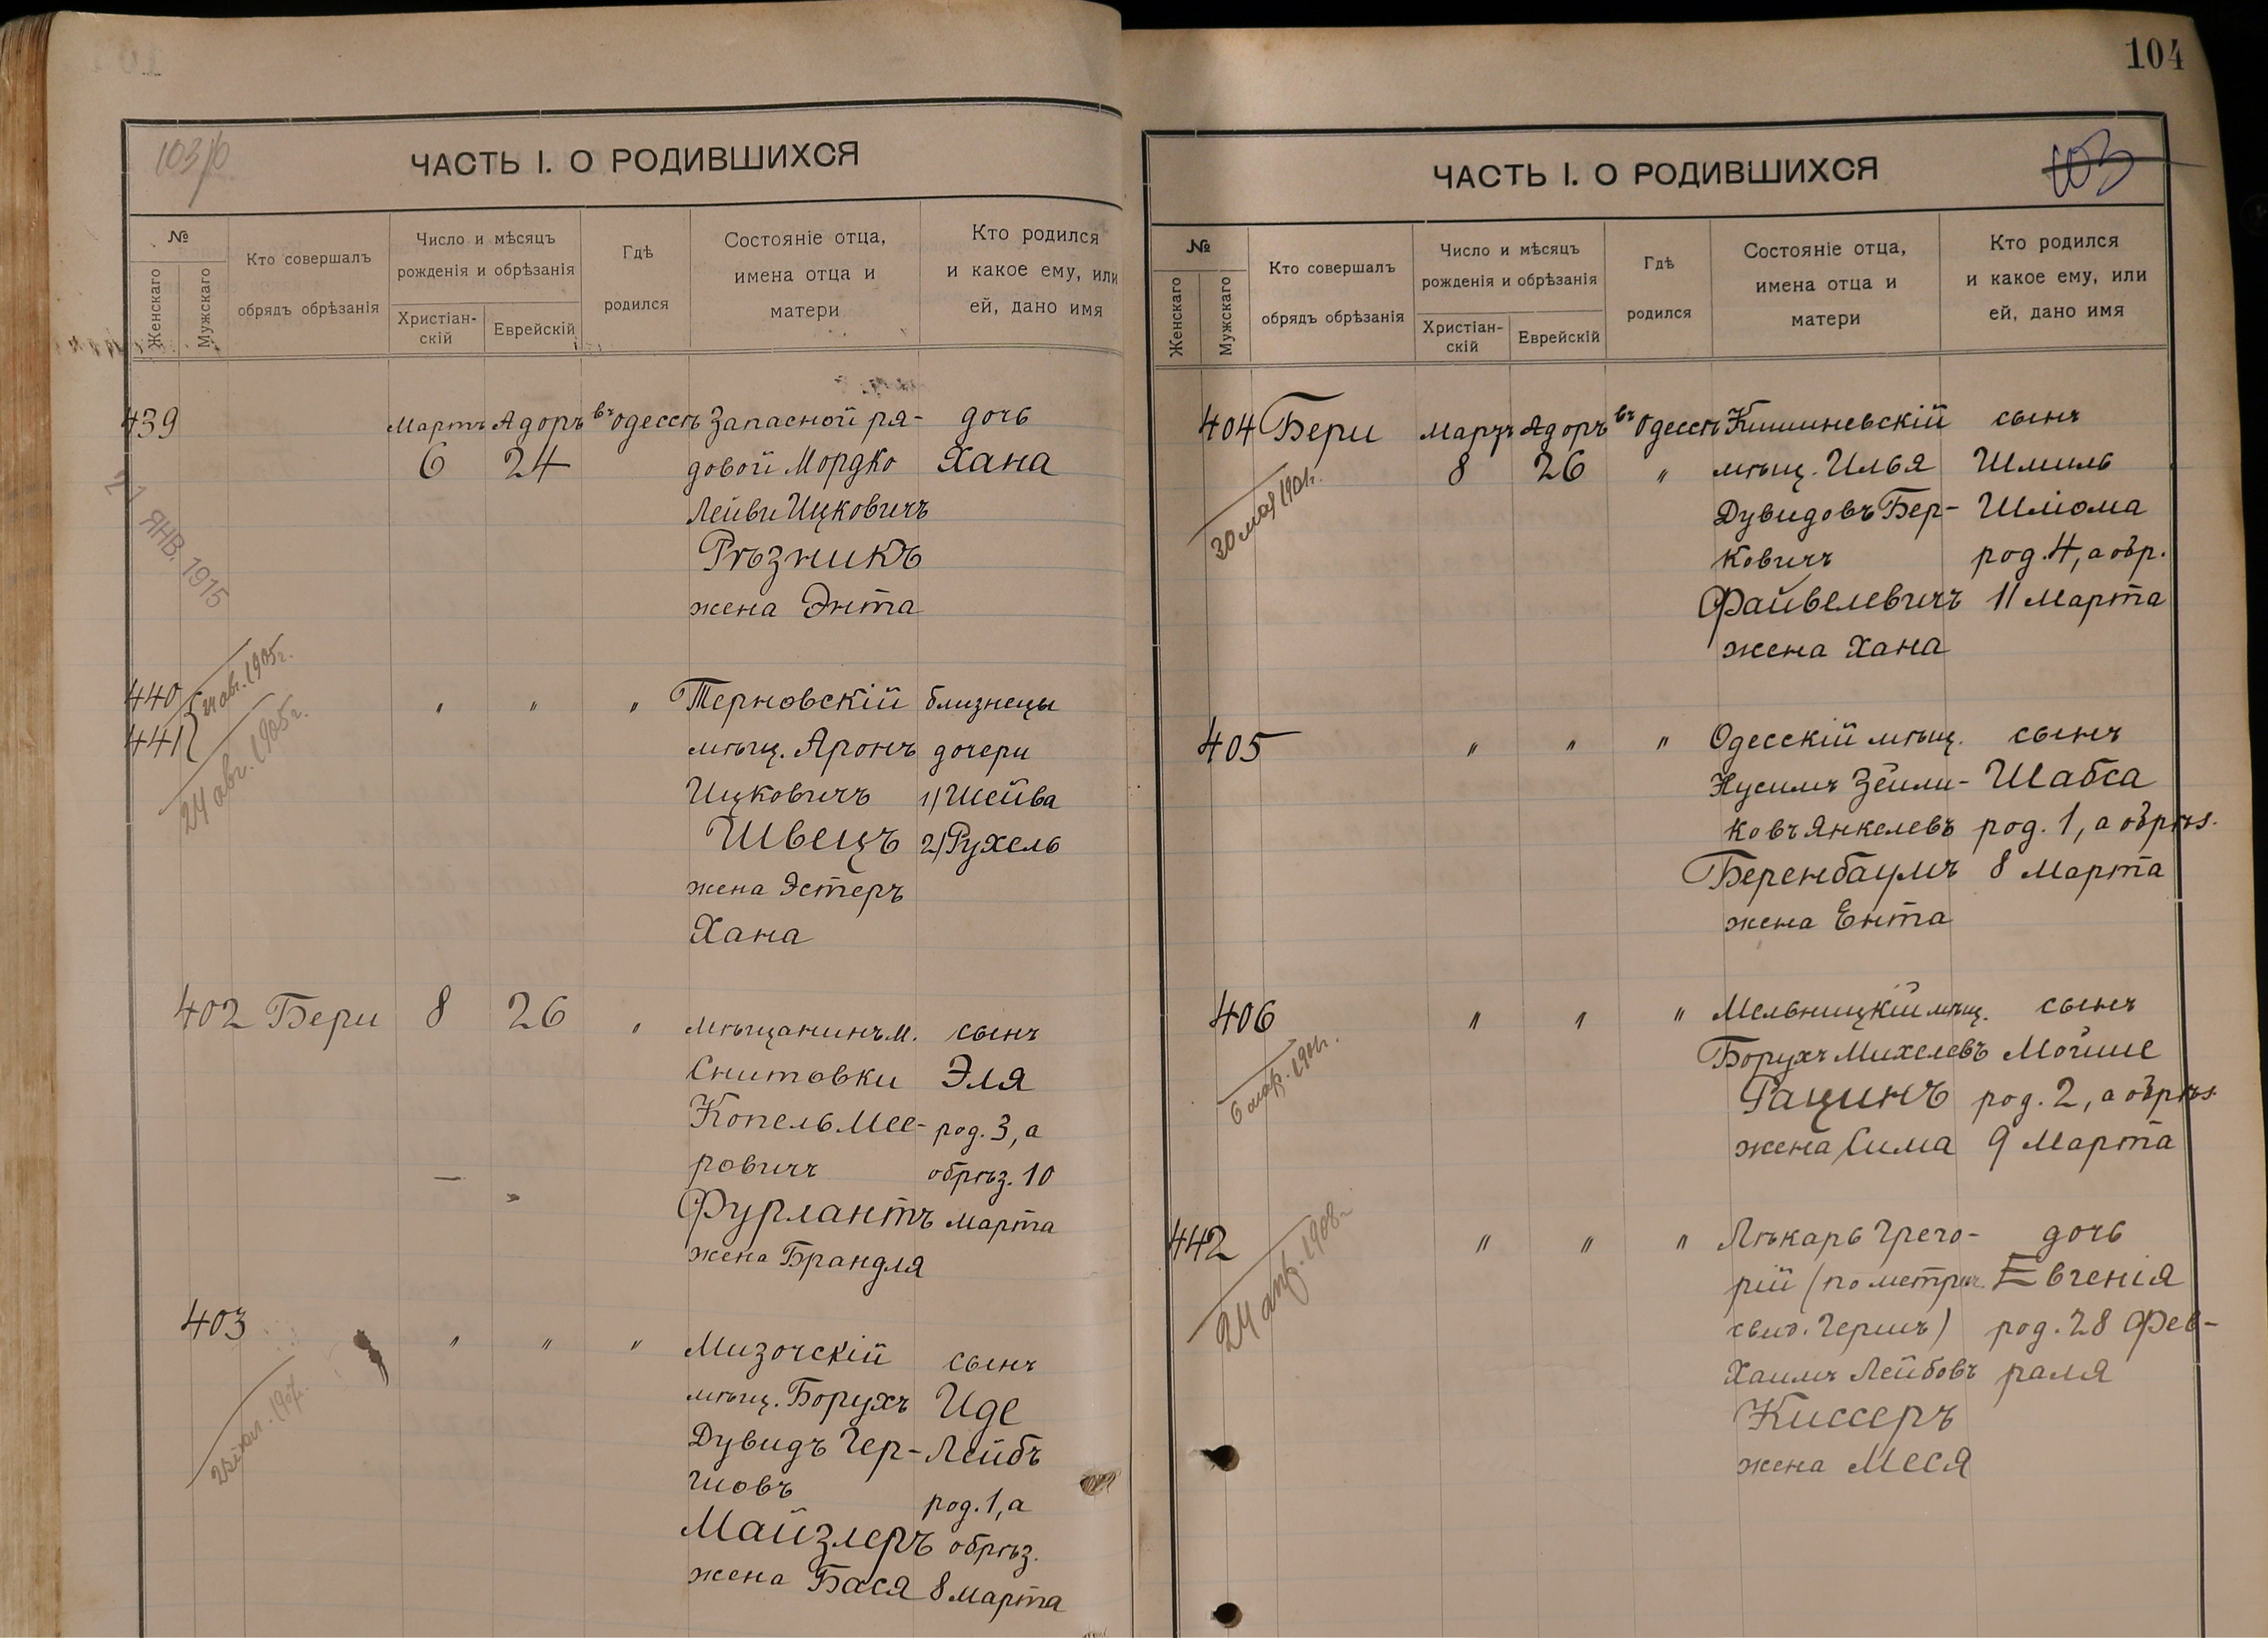 103/б
ЧАСТЬ I. О РОДИВШИХСЯ
№
Женскаго
Мужскаго
Кто совершалъ
обрядъ обрѣзанія
Число и мѣсяцъ
рожденія и обрѣзанія
Христіан-
скій
Еврейскій
Гдѣ
родился
Состояніе отца,
имена отца и
матери
Кто родился
и какое ему, или
ей, дано имя
439 Мартъ Адоръ въ Одессѣ Запасной ря- дочь
6 24 довой Мордко Хана
Лейви Ицковичъ
Рѣзникъ
жена Энта
21 ЯНВ. 1915
440 24 авг. 1905 г. " " " Терновскій близнецы
441 24 авг. 1905 г. мѣщ. Аронъ дочери
Ицковичъ 1) Шейва
Швецъ 2) Рухель
жена Эстеръ
Хана
402 Бери 8 26 " мѣщанинъ м. сынъ
Снитовки Эля
Копель Мее- род. 3, а
ровичъ обрѣз. 10
Фурлантъ марта
жена Брандля
403 " " " Мизочскій сынъ
мѣщ. Борухъ Иде
Дувидъ Гер- Лейбъ
шовъ род. 1, а
Майзлеръ обрѣз.
жена Бася 8 марта
104
ЧАСТЬ I. О РОДИВШИХСЯ
103
№
Женскаго
Мужскаго
Кто совершалъ
обрядъ обрѣзанія
Число и мѣсяцъ
рожденія и обрѣзанія
Христіан-
скій
Еврейскій
Гдѣ
родился
Состояніе отца,
имена отца и
матери
Кто родился
и какое ему, или
ей, дано имя
404 Бери Мартъ Адоръ въ Одессѣ Кишиневскій сынъ
8 26 " мѣщ. Илья Шмиль
30 мая 1901 г. Дувидовъ Бер- Шлiома
ковичъ род. 4, а обр.
Файвелевичъ 11 Марта
жена Хана
405 " " " Одесскій мѣщ. сынъ
Нусимъ Зейли- Шабса
ковъ Янкелевъ род. 1, а обрѣз.
Беренбаумъ 8 Марта
жена Ента
406 " " " Мельницкій мѣщ. сынъ
Борухъ Михелевъ Мойше
Рацинъ род. 2, а обрѣз.
жена Сима 9 Марта
442 " " " Лѣкарь Григо- дочь
24 апр. 1908 г. рій (по метрич. Евгенія
свид. Гершъ) род. 28 Фев-
Хаимъ Лейбовъ раля
Киссеръ
жена Меся